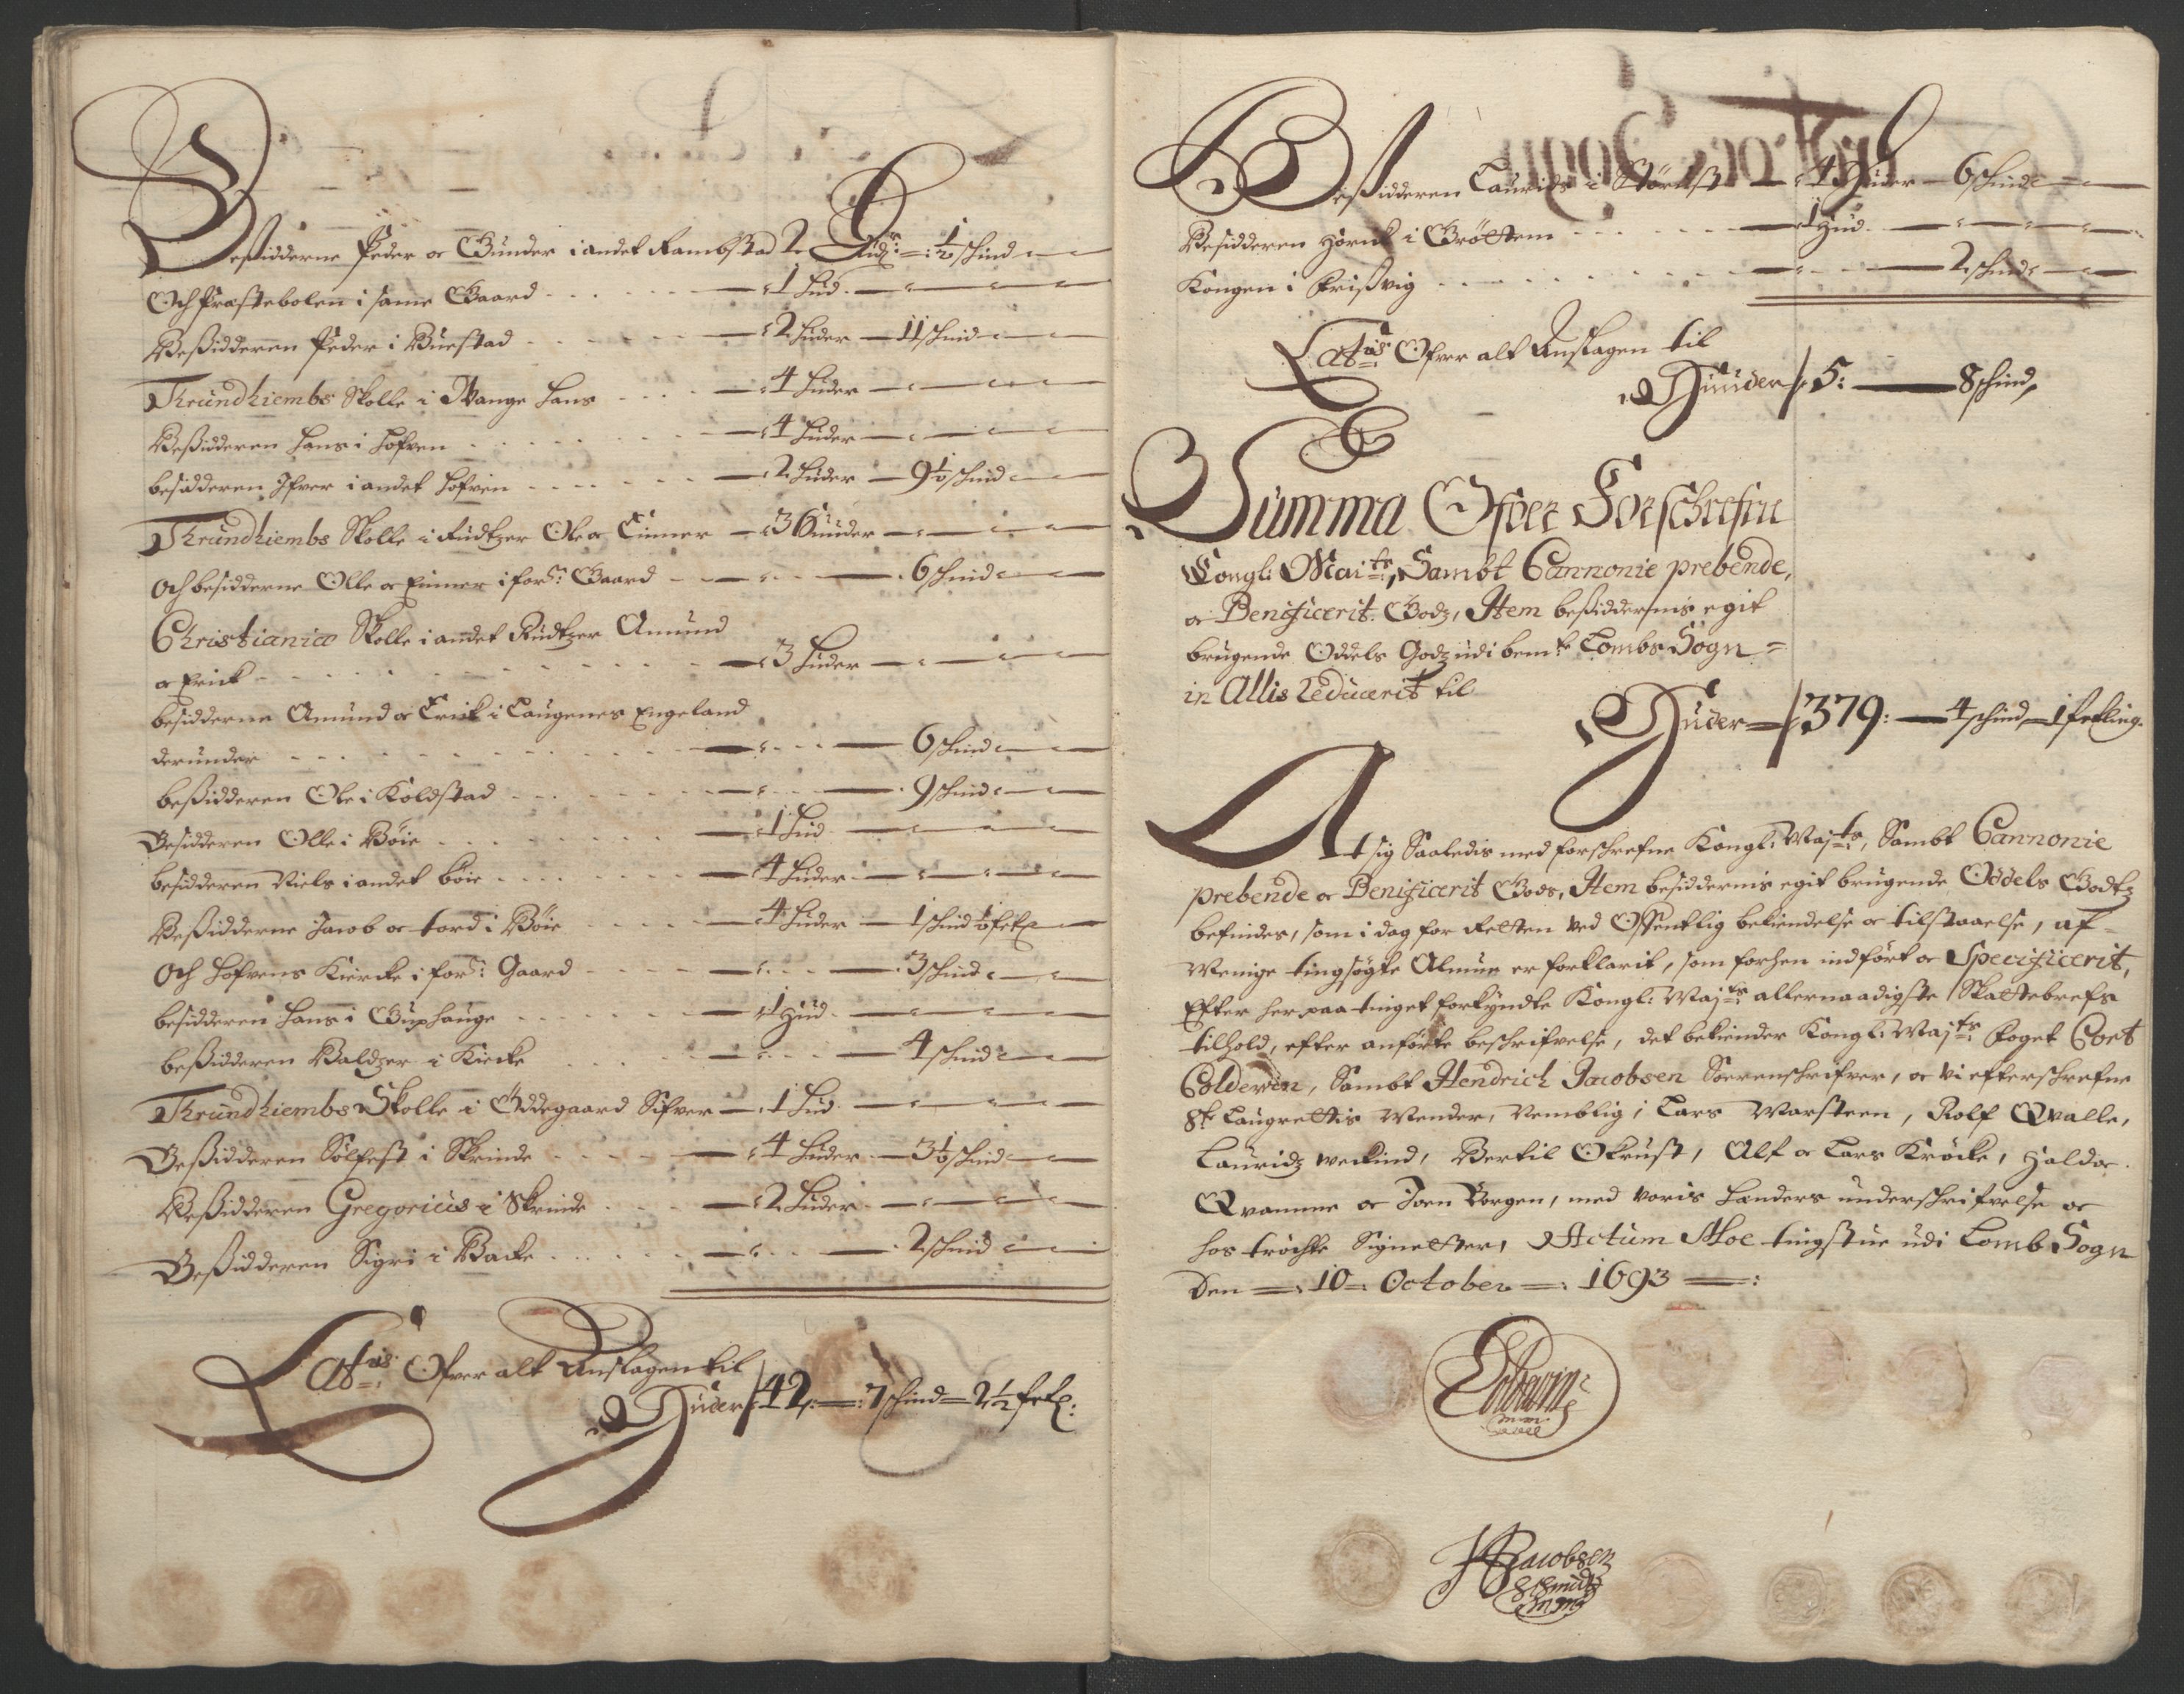 Beßidderne Peder oc Gunder i andet Rambstad 2 Huder ½ schind
Och Præstebolen i same Gaard 1 Hud
Beßidderen Peder i Buestad 2 Huder 11 schind
Thrundhiembs Skolle i Wange Hans 4 Huder
Beßidderen Hans i Hofven 4 Huder
besidderen Ifver i andet Hofven 2 Huder 9½ schind
Thrundhiembs Skolle i Rudtzer Ole oc Einner 3 Huuder
och besidderne Olle oc Einner i forn: Gaard 6 schind
Christianiæ Skolle i andet Rudtzer Amund
oc Erick 3 Huder
besidderne Amund oc Erick i Laugenes Engeland
derunder 6 schind
beßidderen Ole i Koldstad 9 schind
Besidderen Olle i Böie 1 Hud
besidderen Niels i andet böie 4 Huder
Beßidderne Jacob oc tord i Böie 4 Huder 1 schind ½ fetl
Och Hofvens Kiercke i forn: Gaard 3 schind
besidderen Hans i Guphauge 1 Hud
beßidderen Baldzer i Kircke 4 schind
Thrundhiembs Skolle i Öddegaard Sifver 1 Hud
Beßidderen Sölfest i Skrinde 4 Huder 3½ schind
Beßidderen Gregorius i Skrinde 2 Huder
Beßidderen Sigri i Backe 2 schind
Latus Ofver alt Anslagen til
Huder 42 7 schind 2½ fetl:
Beßidderen Laurids i Störust 4 Huder 6 schind
Besidderen Hörnk i Gröttem 1 Hud
Kongen i Frisvig 2 schind
Latus Ofver alt Anslagen til
Huuder 5: 8 schind
Summa Ofver Forschrefne
Kongl: Maits, Sambt Cannonie prebende,
oc Benificerit Godz, Item beßiddernis egit
brugende Oddels Godz udi bemte Lombs Sogn
in Allis Reducerit til
Huder 379: 4 schind 1 fetling
At sig Saaledis med forschrefne Kongl: Majts, Sambt Cannonie
prebende oc Benificerit Gods, Item besiddernis egit brugende Oddels Godtz
befindes, som i dag for Retten ved Offentlig bekiendelse oc tilstaaelse, af
Menige tingsøgte Almue er forklarit, som forhen indfört oc Specificerit,
Efter her paa tinget forkyndte Kongl: Majts allernaadigste Skattebrefs
tilhold, efter anförte beschrifvelse, det bekiender Kongl: Majts foget Cort
Coldewin, Sambt Hendrich Jacobsen Sorrenschrifver, oc vi efterschrefne
8te Laugrettis Mender, Nemblig, Lars Marsteen, Rolf Qvalle,
Lauridz weckind, Bertil Okrust, Alf oc Lars Kröcke, Haldor
Qvamme oc Joen Borgen, med voris Hænders underschrifvelse oc
hos tröchte Signetter, Actum Moe tingstue udi Lomb Sogn
Den 10 October 1693
Coldewin
HJacobsen